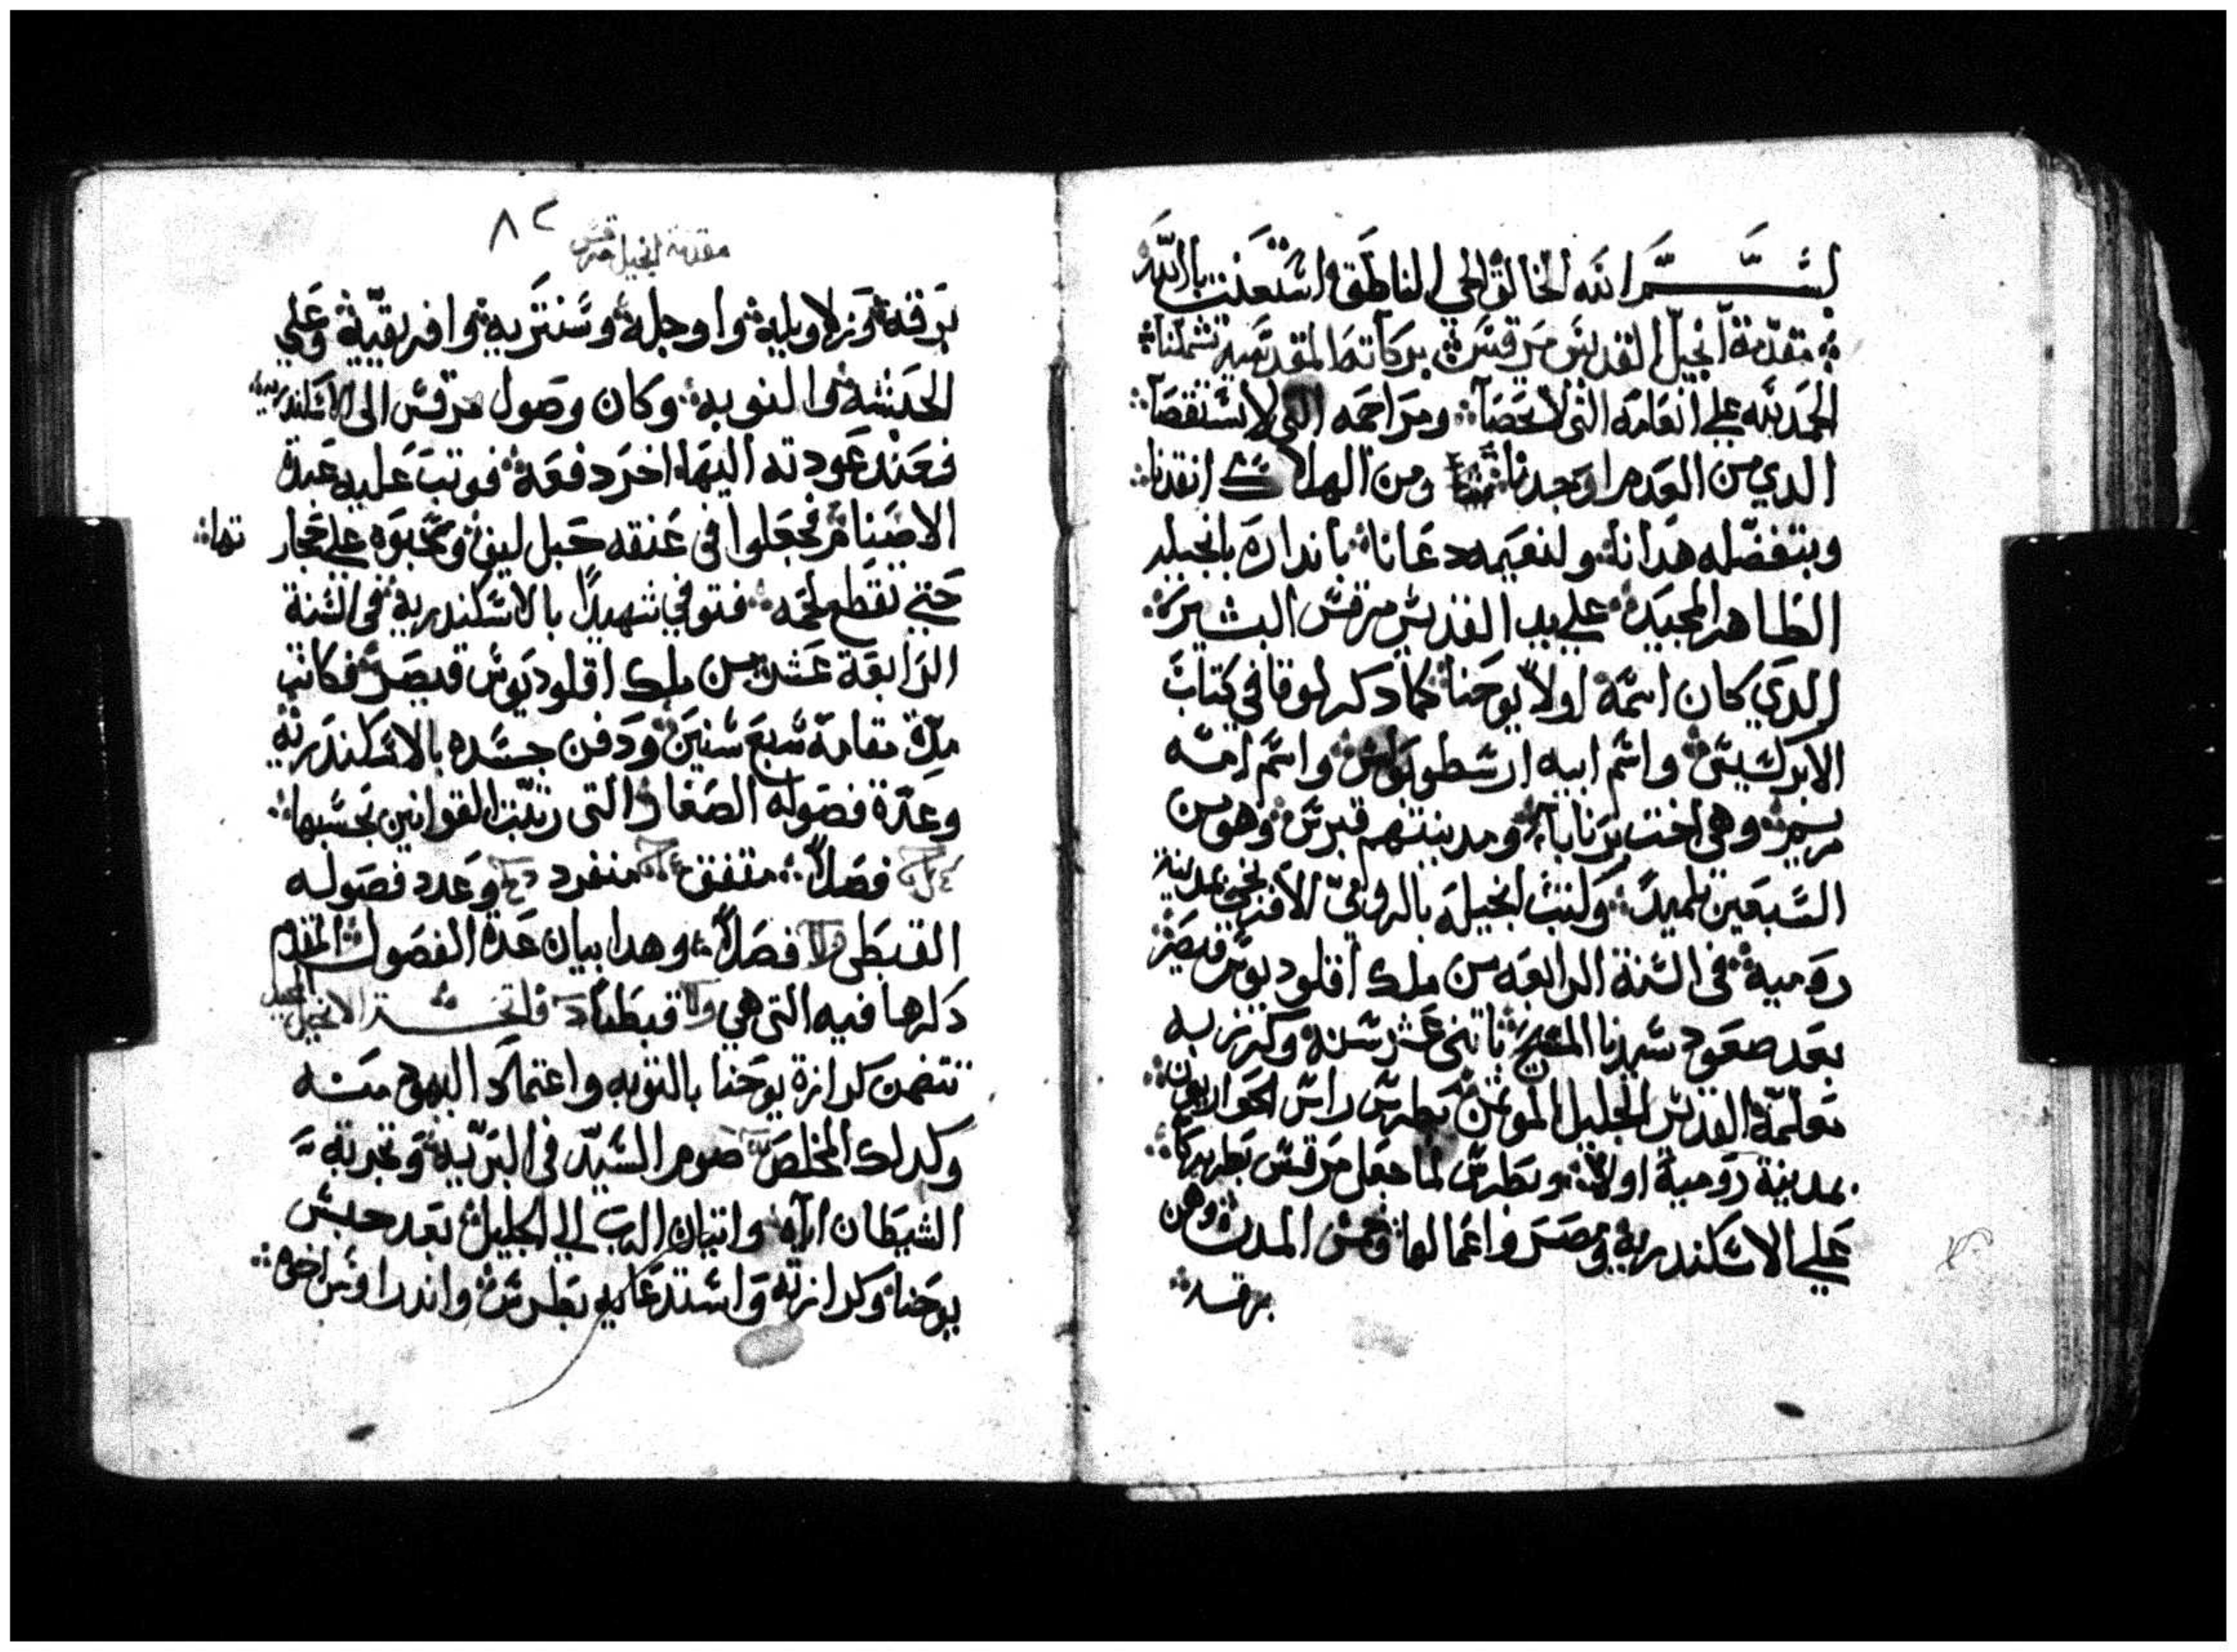 بسم الله الخالق الحي الناطق استعنت بالله
مقدمة انجيل القديس مرقس بركاته المقدسية تشملنا
الحمد لله علي انعامه التى لا تحصا ومراحمه التى لا تستقصا
الدي من العدم اوجدنا ومن الهلاك انقدنا
وبتفضله هدانا ولنعيمه دعانا بانداره بانجيله
الطاهر المجيد علي يد القديس مرقس البشير
الدي كان اسمه اولاً يوحنا كما دكر لوقا في كتاب
الابركسيس واسم ابيه ارسطوبولس واسم امه
مريم وهي اخت برنابا ومدينتهم قبرس وهو من
السبعين تلميد وكتب انجيله بالرومي الافرنجي بمدينة
رومية فى السنة الرابعه من ملك اقلوديوس قيصر
بعد صعود سيدنا المسيح باتنى عشر سنة وكرز به
معلمه القديس الجليل الموتمن بطرس راس الحواريون
بمدينة رومية اولاً وبطرس لما جعل مرقس بطريركاً
علي الاسكندرية ومصر واعمالها وخمس المدن وهن
برقه
٨٢
مقدمة انجيل مرقس
برقه وزلاويليه واوجله وسنتريه وافريقيه وعلي
الحبشة والنوبه وكان وصول مرقس الى الاسكندريه
فعند عودته اليها اخر دفعة فوتب عليه عبدة
الاصنام فجعلوا فى عنقه حبل ليف وسحبوه علي حجارتها
حتي تقطع لحمه فتوفي شهيداً بالاسكندرية فى السنة
الرابعة عشر من ملك اقلوديوس قيصر فكانت
مدة مقامه سبع سنين ودفن جسده بالاسكندرية
وعدة فصوله الصغار التى رتبت القوانين بحسبها
فصلاً متفق منفرد وعدد فصوله
القبطى فصلاً وهدا بيان عدة الفصول المقدم
دكرها فيه التى هي قبطياً فاتحة الانجيل
تتضمن كرازة يوحنا بالتوبه واعتماد اليهود منه
وكدلك المخلص صوم السيد في البرية وتجربة
الشيطان اياه واتيان الرب الي الجليل بعد حبس
يوحنا وكرازته واستدعايه بطرس واندراوس اخوه